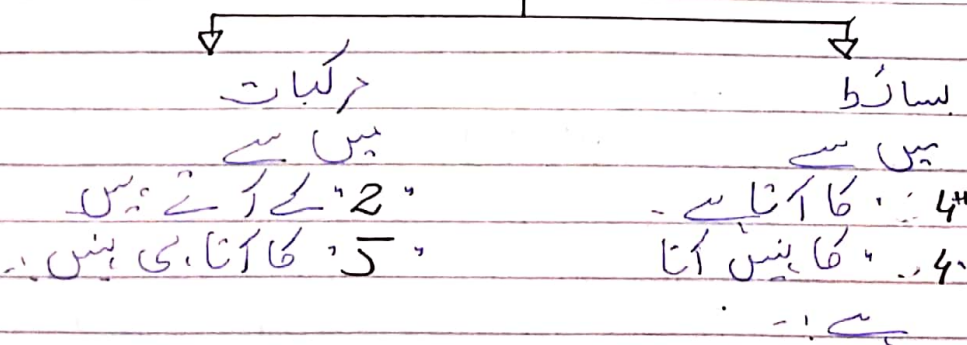 بسائط
میں سے
"4" کا آتا ہے۔
"4" کا نہیں آتا
ہے :۔
مرکبات
میں سے
"2" کے آتے ہیں
"5" کا آتا ہی نہیں :۔